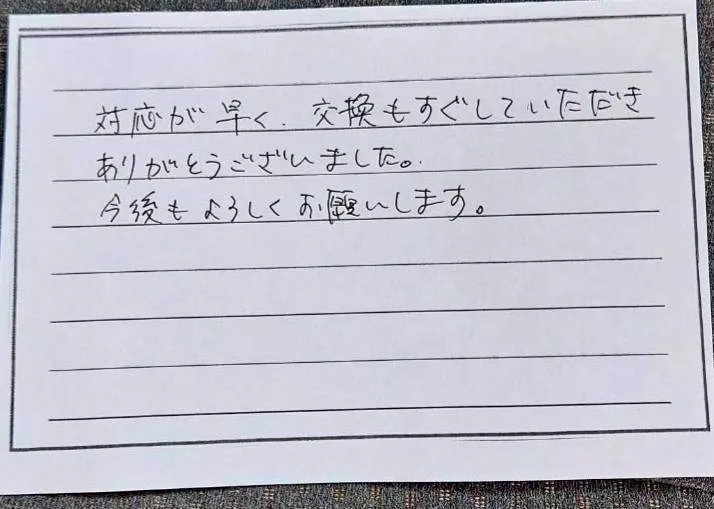 対応が早く、交換もすぐしていただき
ありがとうございました。
今後もよろしくお願いします。